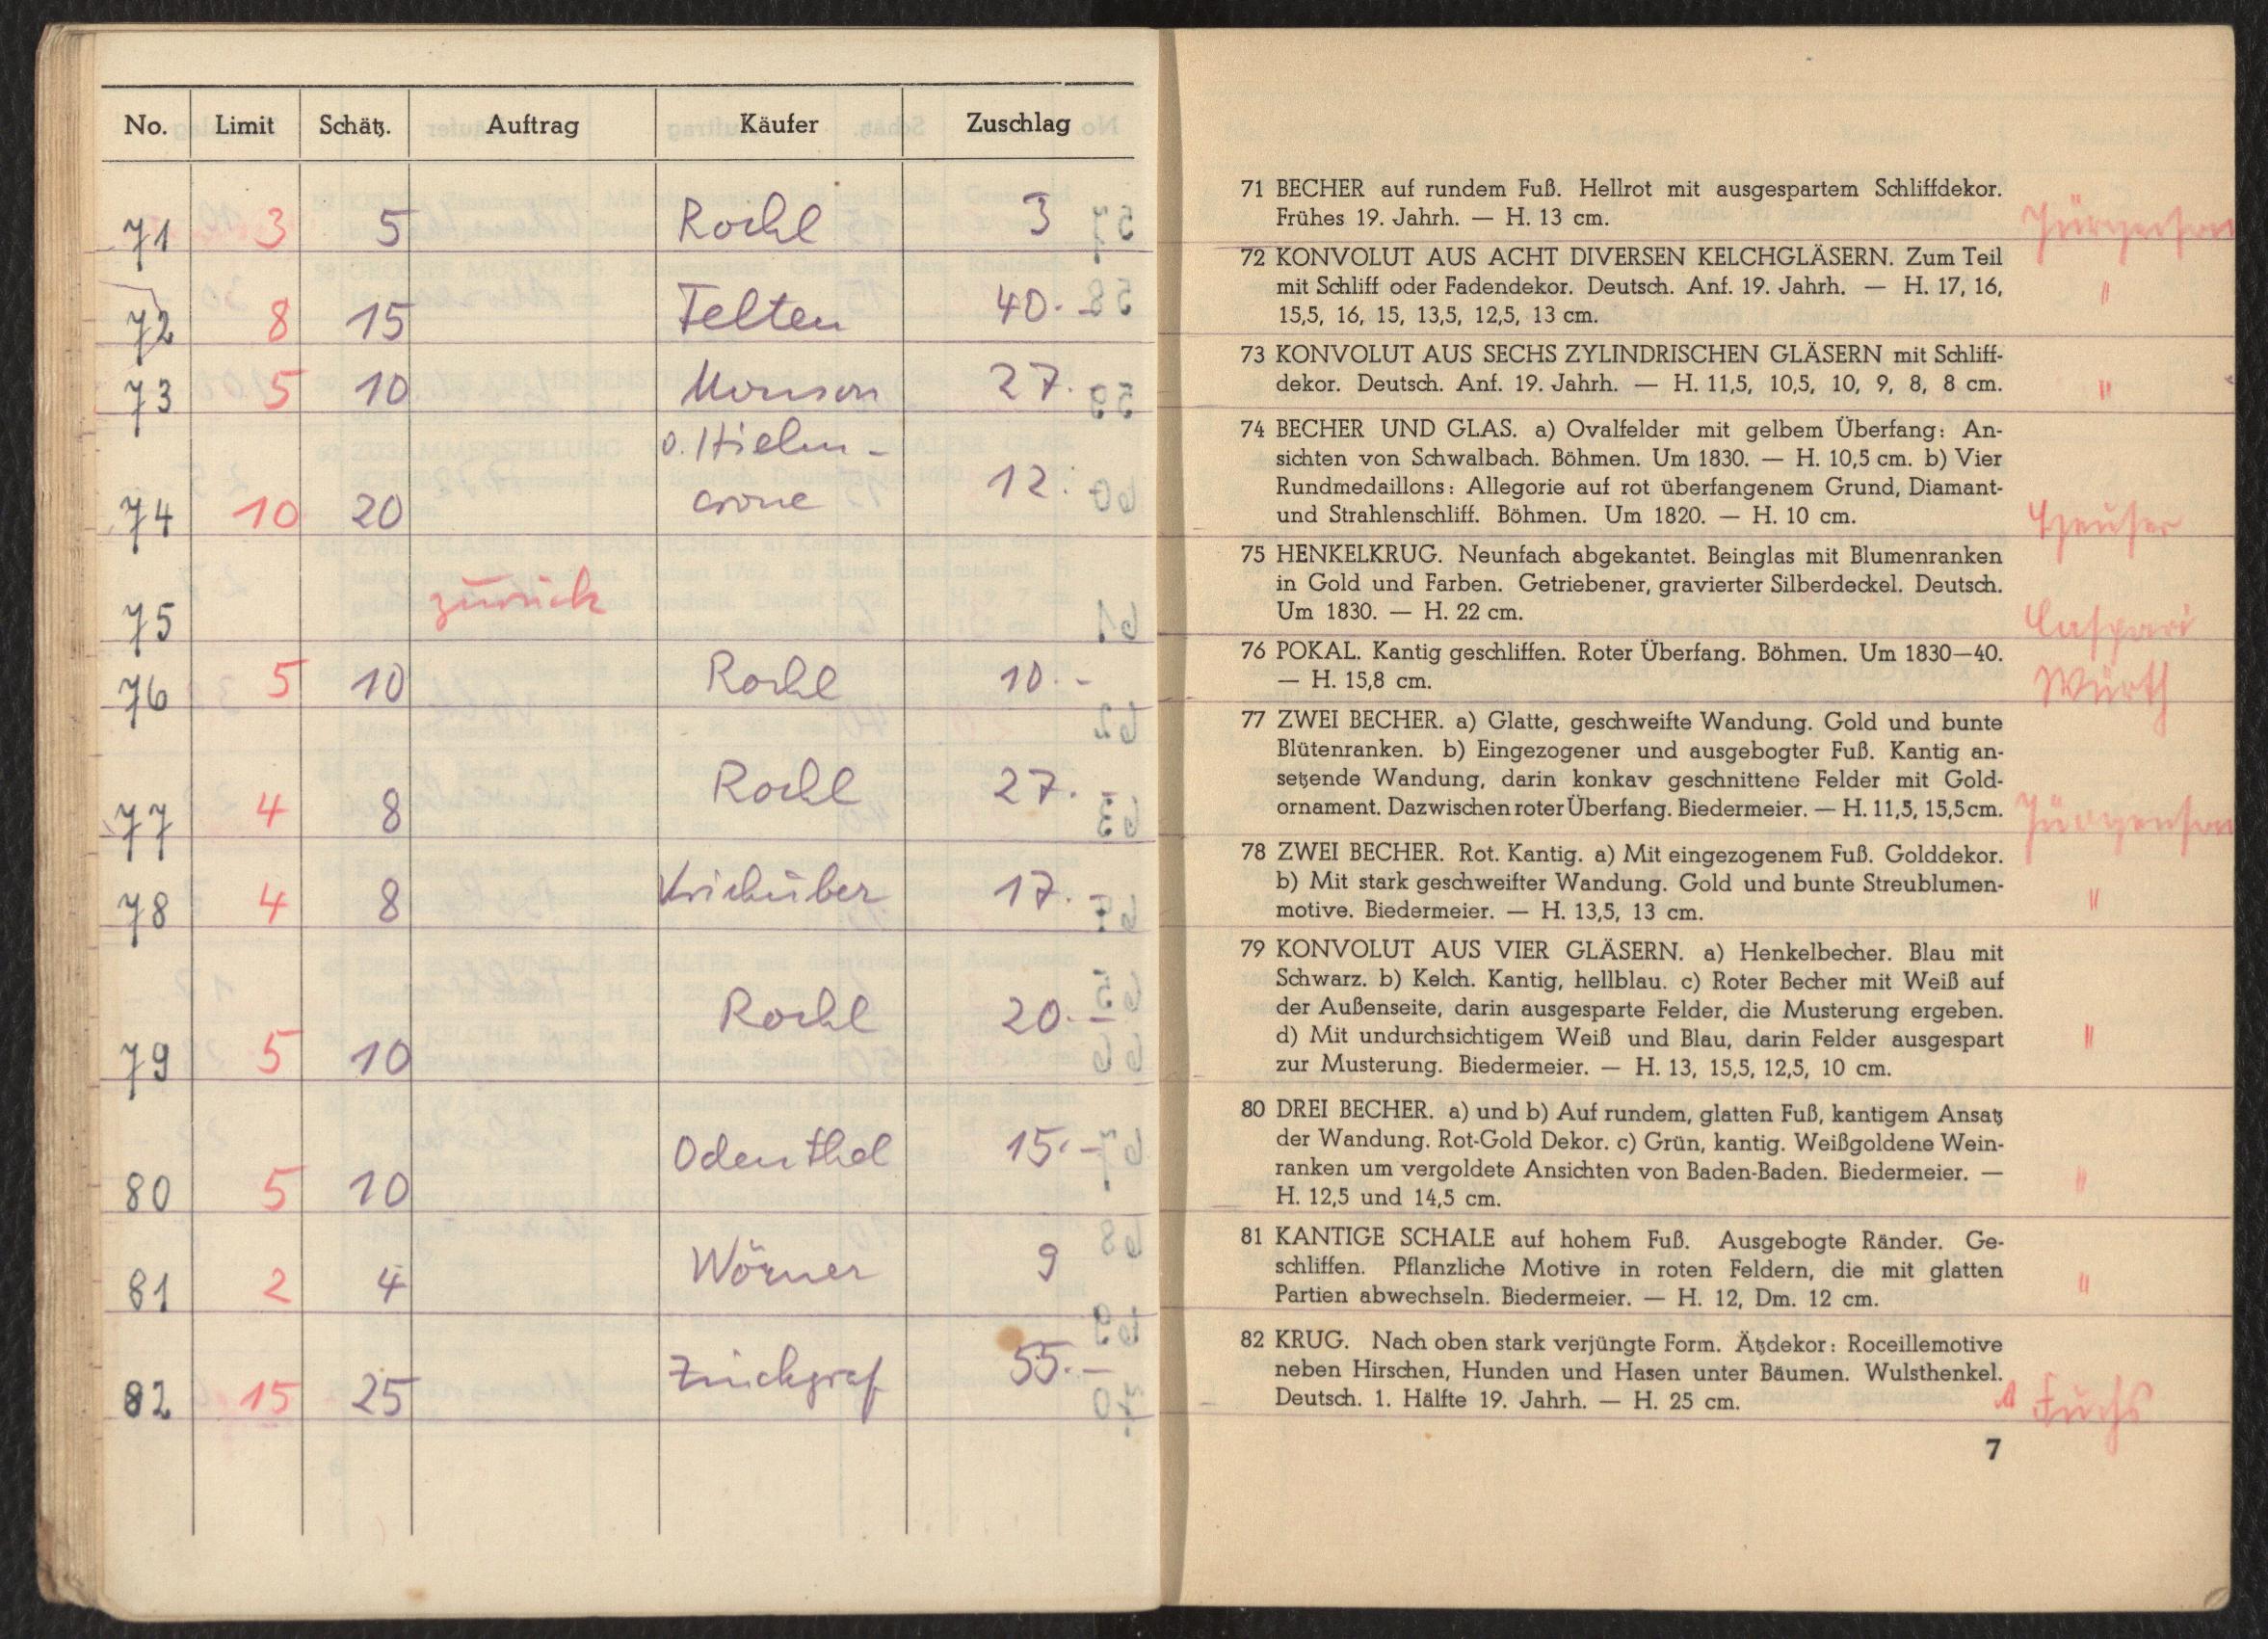 No. Limit Schätz. Auftrag Käufer Zuschlag
71 3 5 Rochl 3
72 8 15 Felten 40.-
73 5 10 27.
v. Hielm-
74 10 20 crone 12.
75 zurück
76 5 10 Rochl 10.-
77 4 8 Rochl 27.-
78 4 8 Kriehuber 17.-
79 5 10 Rochl 20.-
80 5 10 Odenthal 15.-
81 2 4 Wörner 9
82 15 25 Zinckgraf 55.-
71 BECHER auf rundem Fuß. Hellrot mit ausgespartem Schliffdekor.
Frühes 19. Jahrh. — H. 13 cm. Jürgenson
72 KONVOLUT AUS ACHT DIVERSEN KELCHGLÄSERN. Zum Teil
mit Schliff oder Fadendekor. Deutsch. Anf. 19. Jahrh. — H. 17, 16, "
15,5, 16, 15, 13,5, 12,5, 13 cm.
73 KONVOLUT AUS SECHS ZYLINDRISCHEN GLÄSERN mit Schliff-
dekor. Deutsch. Anf. 19. Jahrh. — H. 11,5, 10,5, 10, 9, 8, 8 cm. "
74 BECHER UND GLAS. a) Ovalfelder mit gelbem Überfang: An-
sichten von Schwalbach. Böhmen. Um 1830. — H. 10,5 cm. b) Vier
Rundmedaillons: Allegorie auf rot überfangenem Grund, Diamant-
und Strahlenschliff. Böhmen. Um 1820. — H. 10 cm. Heuser
75 HENKELKRUG. Neunfach abgekantet. Beinglas mit Blumenranken
in Gold und Farben. Getriebener, gravierter Silberdeckel. Deutsch.
Um 1830. — H. 22 cm. Caspari
76 POKAL. Kantig geschliffen. Roter Überfang. Böhmen. Um 1830—40.
— H. 15,8 cm. Würth
77 ZWEI BECHER. a) Glatte, geschweifte Wandung. Gold und bunte
Blütenranken. b) Eingezogener und ausgebogter Fuß. Kantig an-
setzende Wandung, darin konkav geschnittene Felder mit Gold-
ornament. Dazwischen roter Überfang. Biedermeier. — H. 11,5, 15,5 cm. Jürgenson
78 ZWEI BECHER. Rot. Kantig. a) Mit eingezogenem Fuß. Golddekor.
b) Mit stark geschweifter Wandung. Gold und bunte Streublumen-
motive. Biedermeier. — H. 13,5, 13 cm. "
79 KONVOLUT AUS VIER GLÄSERN. a) Henkelbecher. Blau mit
Schwarz. b) Kelch. Kantig, hellblau. c) Roter Becher mit Weiß auf
der Außenseite, darin ausgesparte Felder, die Musterung ergeben.
d) Mit undurchsichtigem Weiß und Blau, darin Felder ausgespart "
zur Musterung. Biedermeier. — H. 13, 15,5, 12,5, 10 cm.
80 DREI BECHER. a) und b) Auf rundem, glatten Fuß, kantigem Ansatz
der Wandung. Rot-Gold Dekor. c) Grün, kantig. Weißgoldene Wein-
ranken um vergoldete Ansichten von Baden-Baden. Biedermeier. — "
H. 12,5 und 14,5 cm.
81 KANTIGE SCHALE auf hohem Fuß. Ausgebogte Ränder. Ge-
schliffen. Pflanzliche Motive in roten Feldern, die mit glatten "
Partien abwechseln. Biedermeier. — H. 12, Dm. 12 cm.
82 KRUG. Nach oben stark verjüngte Form. Ätzdekor: Roceillemotive
neben Hirschen, Hunden und Hasen unter Bäumen. Wulsthenkel.
Deutsch. 1. Hälfte 19. Jahrh. — H. 25 cm. Fuchs
7